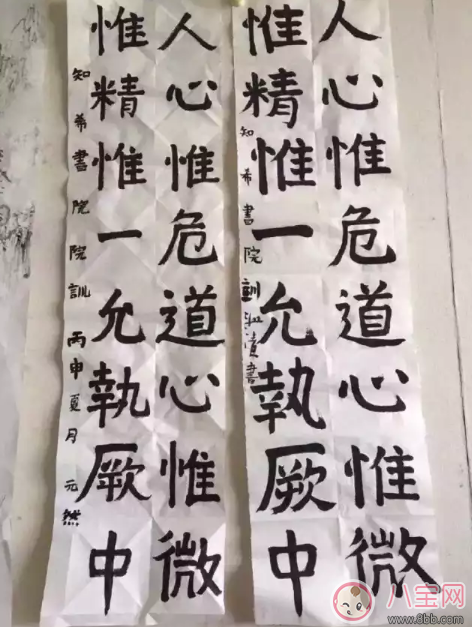 人心惟危道心惟微
惟精惟一允執厥中
知希書院訓淑清書
人心惟危道心惟微
惟精惟一允執厥中
知希書院院訓 丙申夏月 元然
八宝网
www.8bb.com